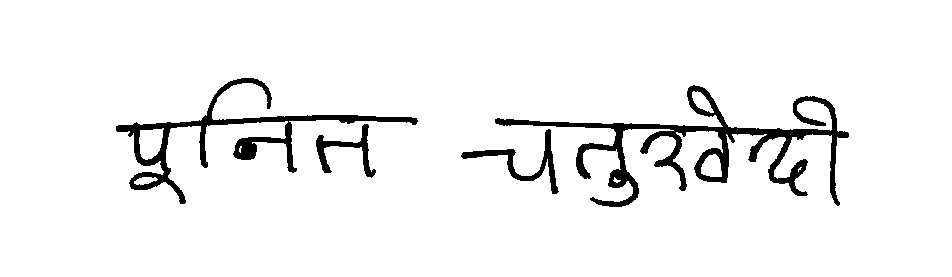 पूनित चतुरवेदी